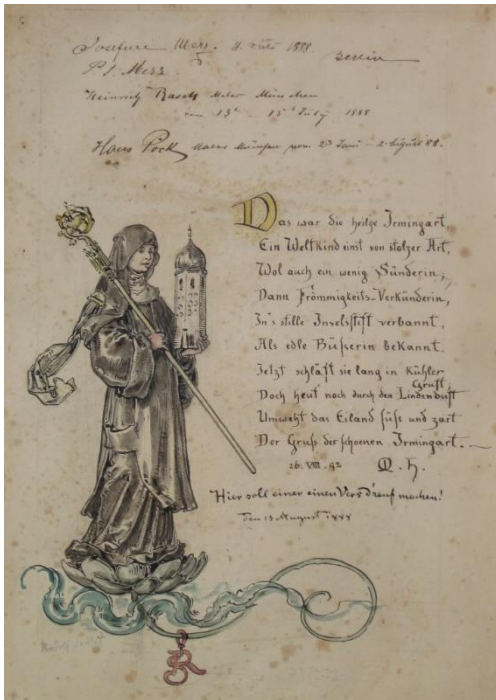 Josefine Merz. 1888. Berlin
P. J. Merz.
Heinrich Rasch Maler München
vom 13t - 15t July 1888
Hans Pock Maler München vom 23 Juni - 2 August 88.
Das war die heilge Irmingart,
Ein Weltkind einst von stolzer Art,
Wol auch ein wenig Sünderin,
Dann Frömmigkeits-Verkünderin,
In's stille Inselstift verbannt,
Als edle Büßerin bekannt.
Jetzt schläft sie lang in kühler
Gruft,
Doch heut' noch durch den Lindenduft
Umweht das Eiland süß und zart
Der Gruß der schoenen Irmingart.
26. VIII. 92 M. H.
Hier soll einer einen Vers drauf machen!
Den 13 August 1888
R